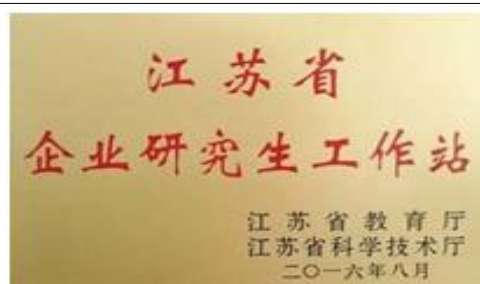 江苏省
企业研究生工作站
江苏省教育厅
江苏省科学技术厅
二〇一六年八月